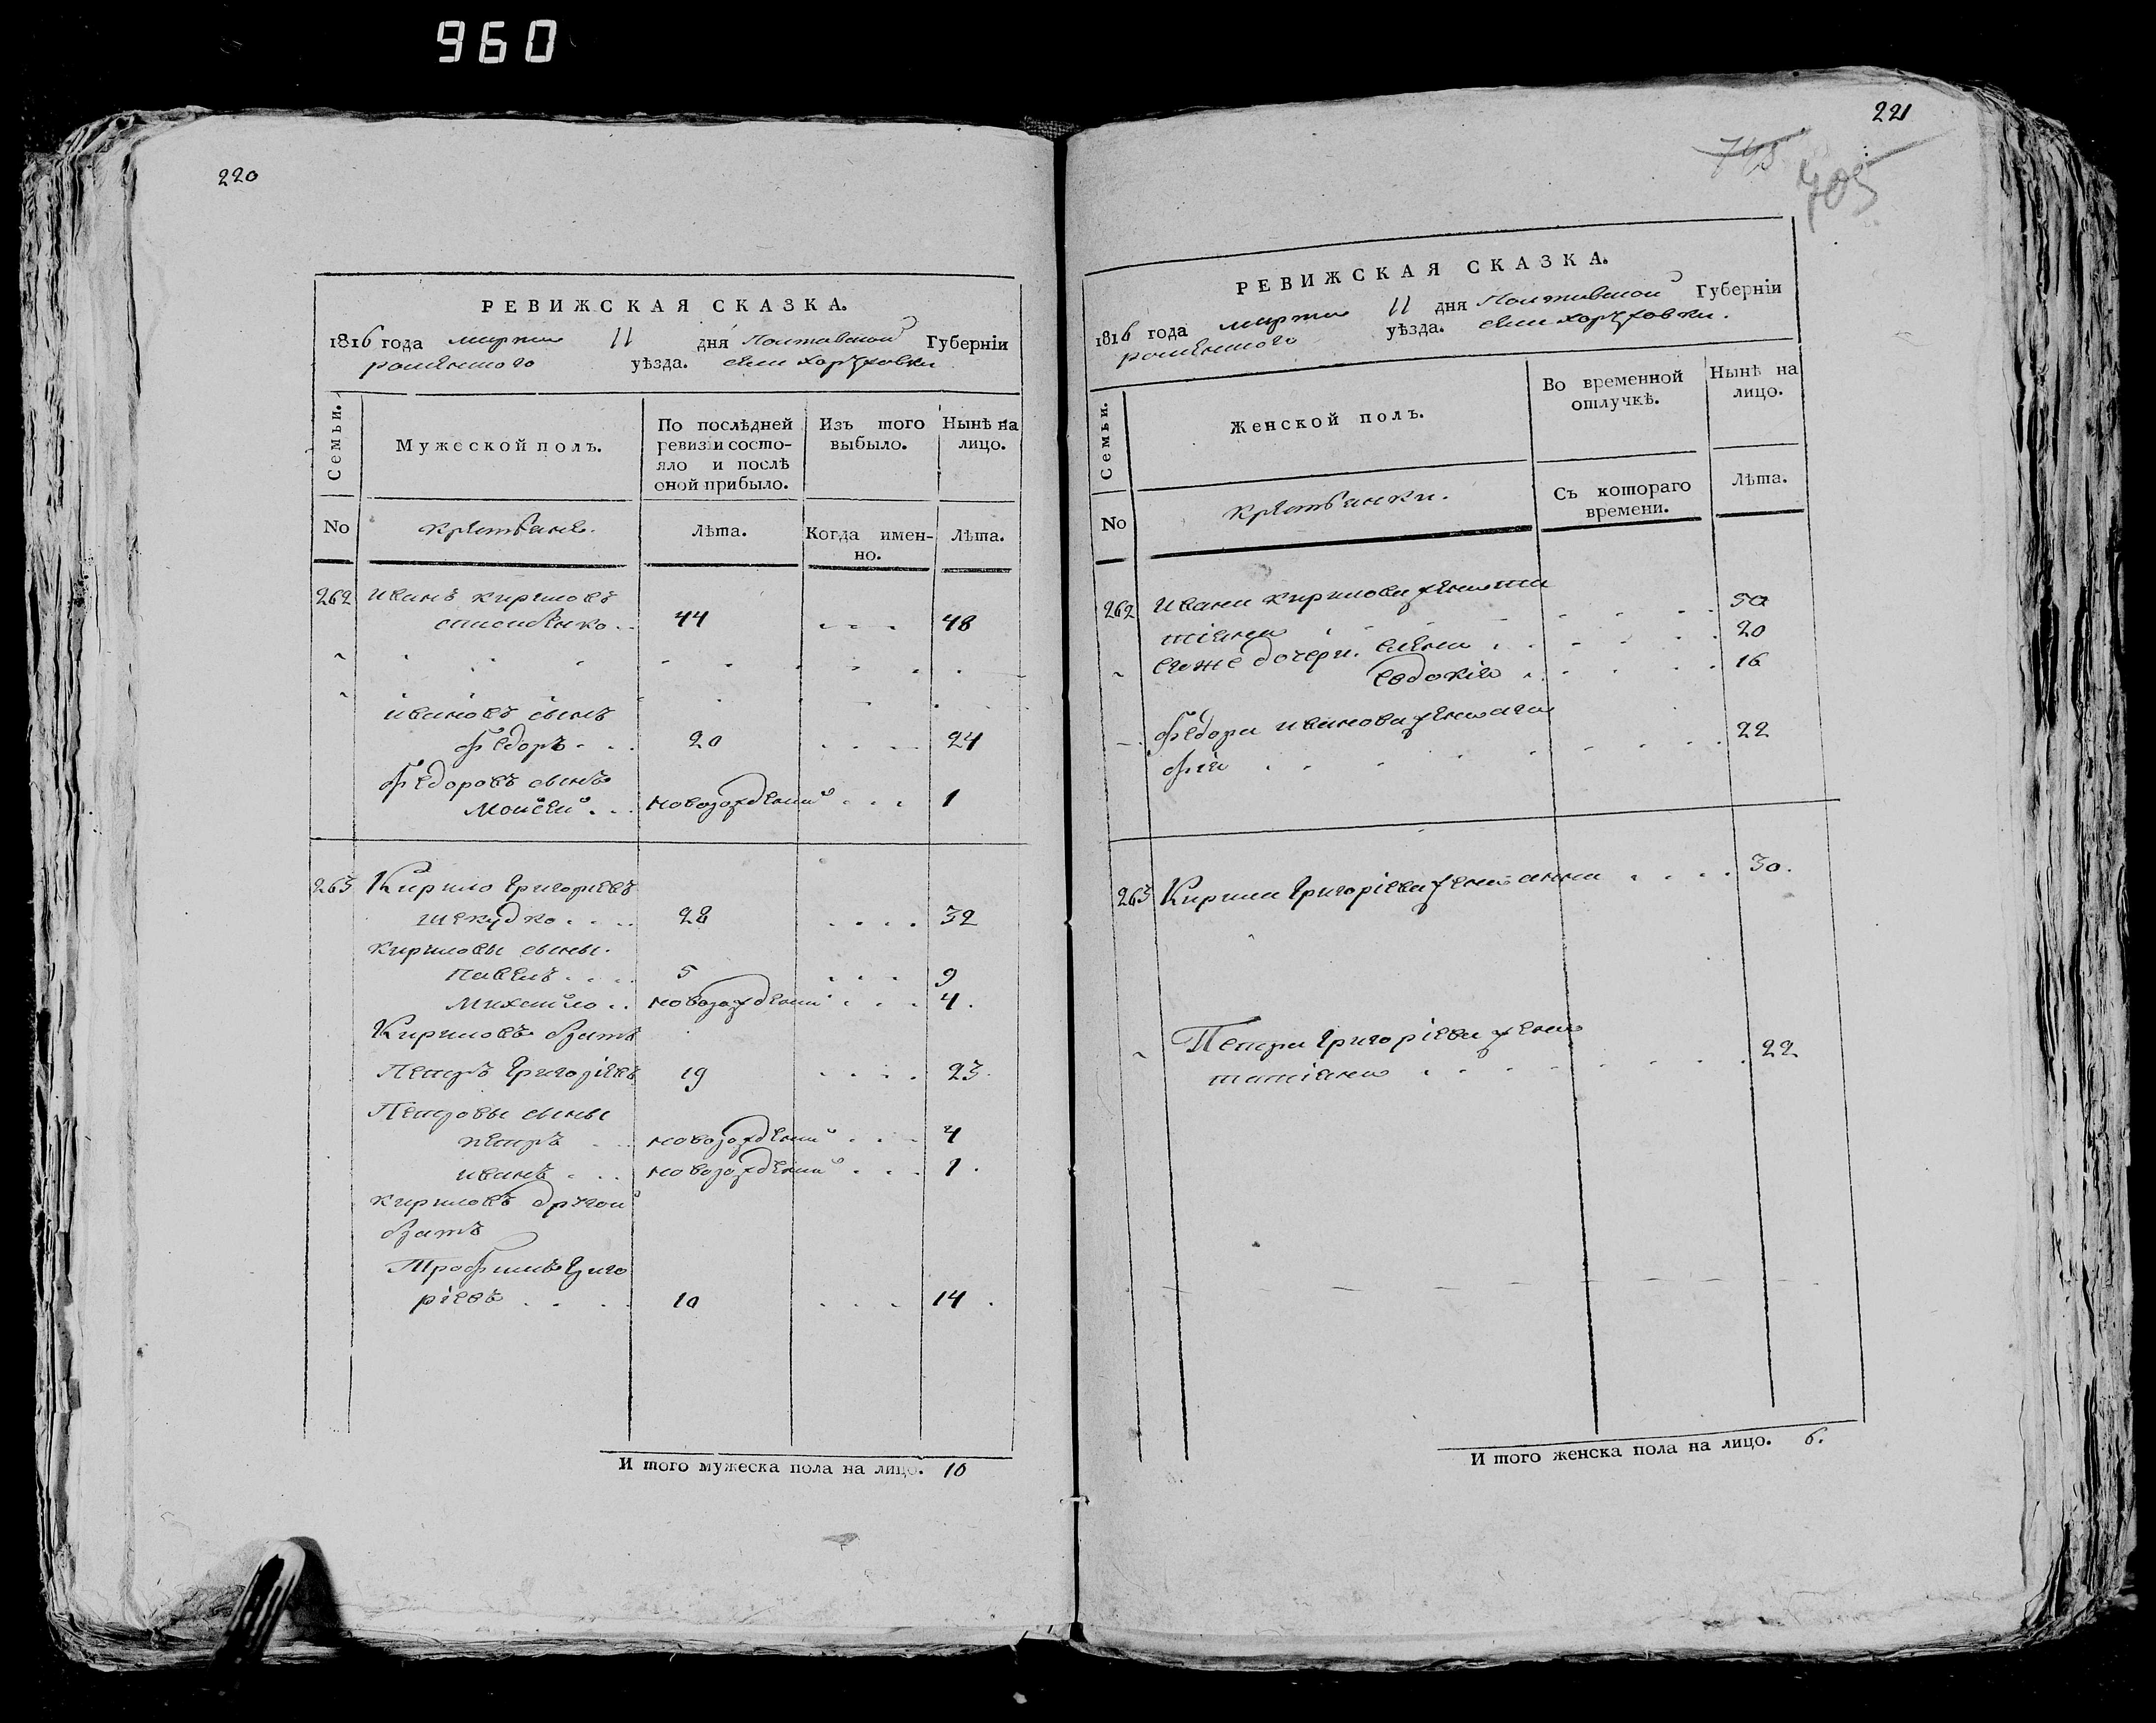 960
220
РЕВИЖСКАЯ СКАЗКА.
1816 года марта 11 дня Полтавской Губерніи
роменского уѣзда. села хоружовки
Семьи.
Мужеской полъ.
По послѣдней ревизіи состояло и послѣ оной прибыло.
Изъ того выбыло.
Нынѣ на лицо.
No
крестьяне.
Лѣта.
Когда именно.
Лѣта.
262 иванъ кириловъ
44 48
ивановъ сынъ
федоръ 20 24
федоровъ сынъ
моисей новорожденый 1
263 Кирило григориевъ
шекудко 28 32
кириловы сыны.
павелъ 5 9
михайло новорожденый 4.
Кириловъ братъ
Петръ григоріевъ 19 23.
Петровы сыны
петръ новорожденый 4
иванъ новорожденый 1.
кириловъ другой
братъ
Трофимъ григо
ріевъ 10 14.
И того мужеска пола на лицо. 10
221
705
РЕВИЖСКАЯ СКАЗКА.
1816 года марта 11 дня Полтавской Губерніи
роменского уѣзда. села хоружовки.
Семьи.
Женской полъ.
Во временной отлучкѣ.
Нынѣ на лицо.
No
крестьянки.
Съ котораго времени.
Лѣта.
262 ивана кирилова жена та
тіяна 50
его же дочери. елена 20
евдокія 16
федора иванова жена ага
фія 22
263 Кирила григоріева жена анна 30.
Петра григоріева жена
татіяна 22
И того женска пола на лицо. 6.